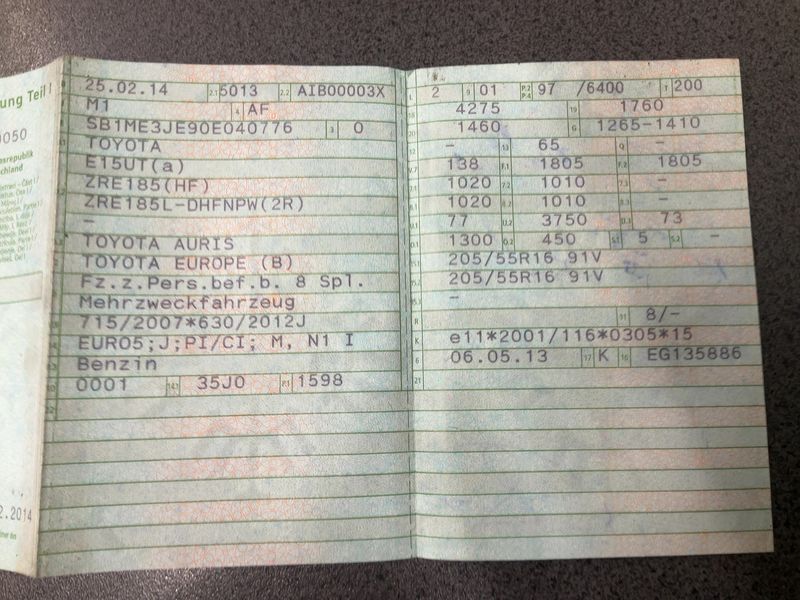 ung Teil I
0050
esrepublik
chland
2.2014
25.02.14 2.1 5013 2.2 AIB00003X
M1 4 AF
SB1ME3JE90E040776 3 0
TOYOTA
E15UT(a)
ZRE185(HF)
ZRE185L-DHFNPW(2R)
–
TOYOTA AURIS
TOYOTA EUROPE (B)
Fz.z.Pers.bef.b. 8 Spl.
Mehrzweckfahrzeug
715/2007*630/2012J
EURO5;J;PI/CI; M, N1 I
Benzin
0001 14.1 35J0 P.1 1598
22
L 2 9 01 P.2 P.4 97 /6400 T 200
18 4275 19 1760
20 1460 G 1265-1410
12 – 13 65 Q –
V.7 138 F.1 1805 F.2 1805
7.1 1020 7.2 1010 7.3 –
8.1 1020 8.2 1010 8.3 –
U.1 77 U.2 3750 U.3 73
O.1 1300 O.2 450 S.1 5 S.2 –
15.1 205/55R16 91V
15.2 205/55R16 91V
15.3 –
R 11 8/-
K e11*2001/116*0305*15
6 06.05.13 17 K 16 EG135886
21